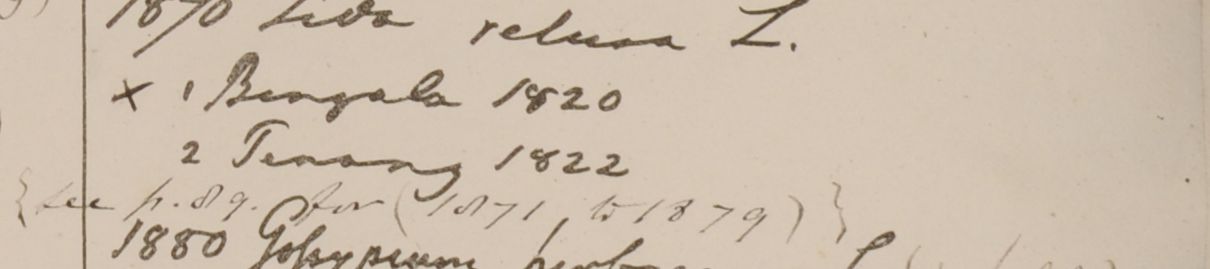 1870 Sida retusa L.
× 1 Bengala 1820
2 Penang 1822
{see p. 89. for (1871 to 1879)}
1880 Gossypium herbac L